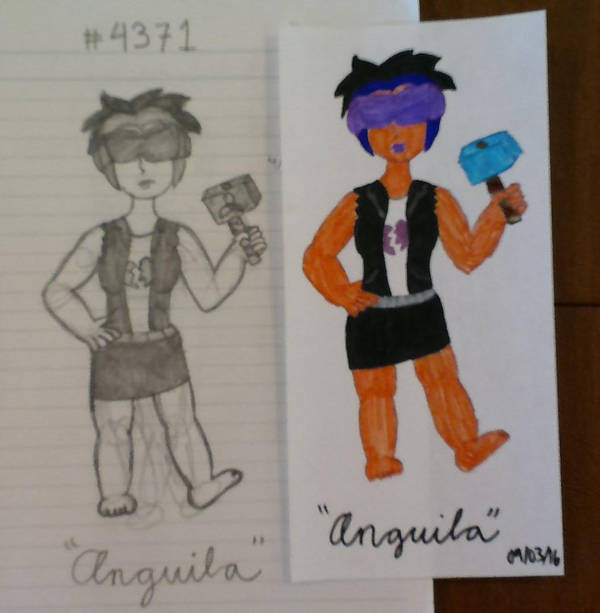 #4371
"Anguila"
"Anguila"
09/03/16